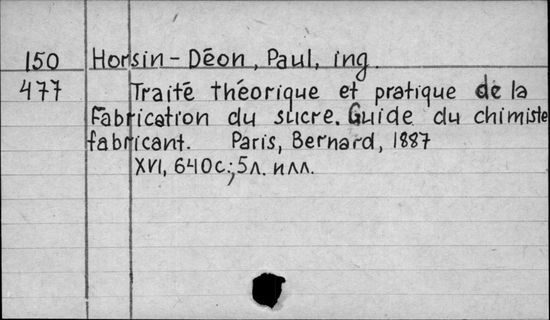 150 Horsin-Déon, Paul, ing.
477 Traité théorique et pratique de la
Fabrication du sucre. Guide du chimiste
fabricant. Paris, Bernard, 1887
XVI, 640с.; 5л. илл.